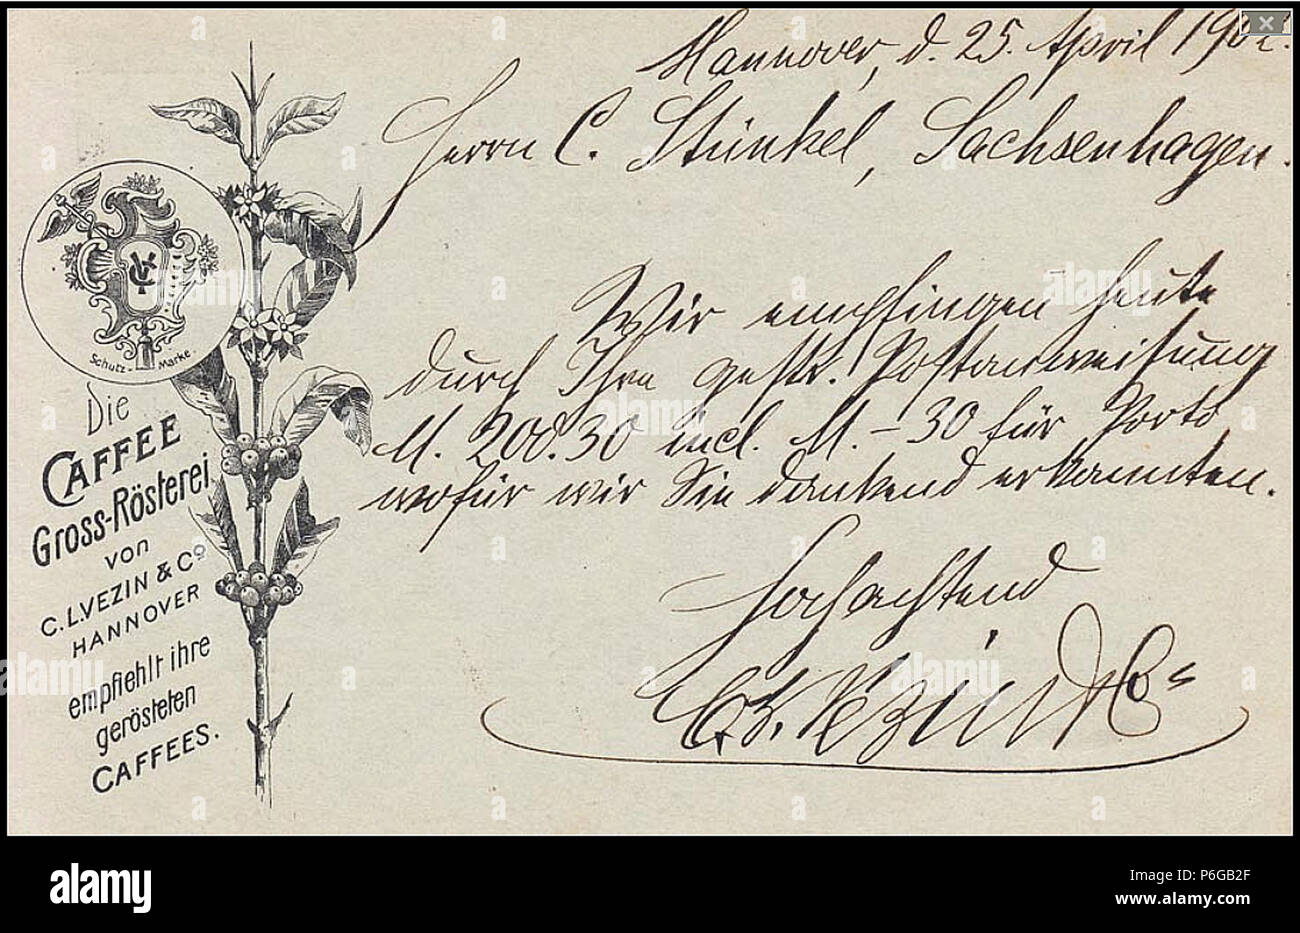 Hannover, d. 25. April 1902.
Herrn C. Stünkel, Sachsenhagen.
Wir empfingen heute
durch Ihre gestr. Postanweisung
M. 200.30 incl. M. – 30 für Porto
wofür wir Sie dankend erkannten.
Hochachtend
C. L. Vezin & Co
Schutz-Marke.
Die
CAFFEE
Gross-Rösterei
von
C. L. VEZIN & Co
HANNOVER
empfiehlt ihre
gerösteten
CAFFEES.
alamy
Image ID: P6GB2F
www.alamy.com